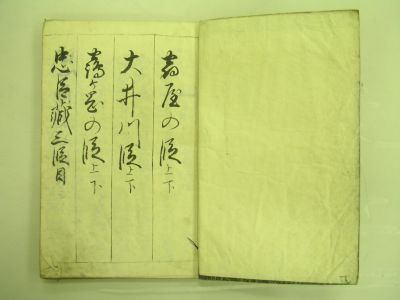 屋の段上下
大井川段上下
鶴ヶ岡の段上下
忠臣蔵三段目